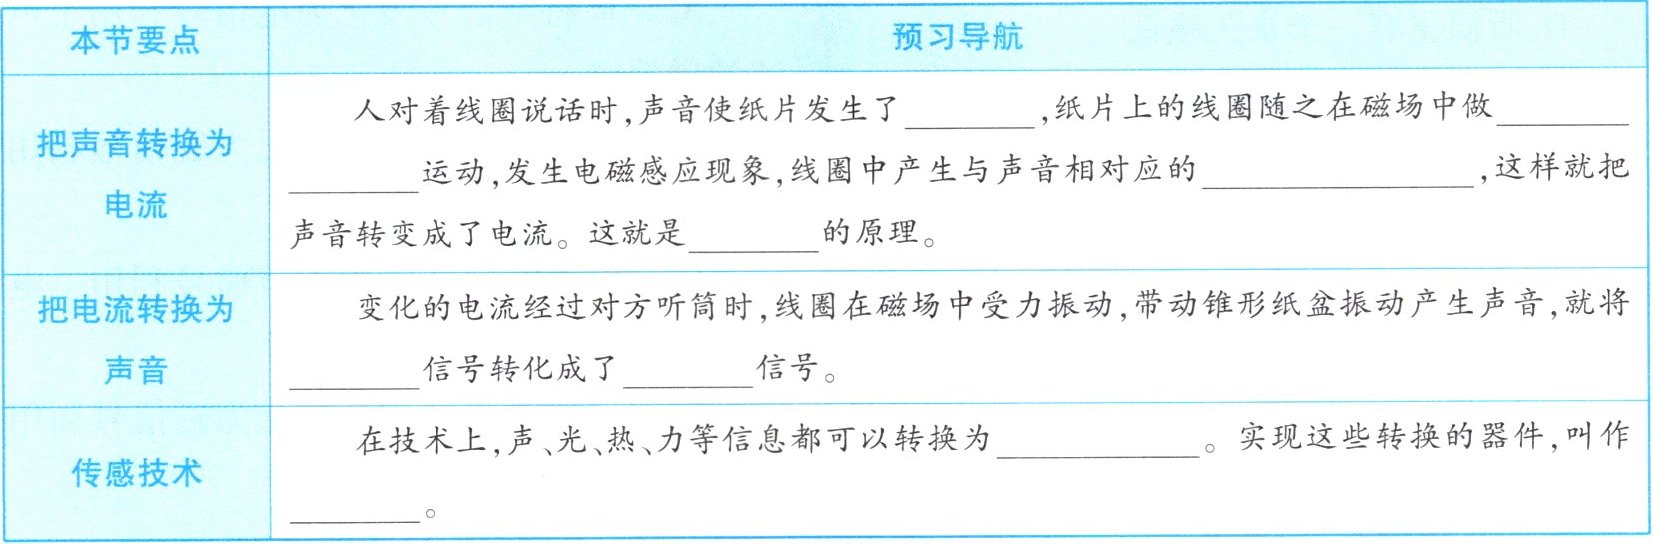 本节要点
预习导航
把声音转换为
电流
人对着线圈说话时,声音使纸片发生了________,纸片上的线圈随之在磁场中做________
________运动,发生电磁感应现象,线圈中产生与声音相对应的________________,这样就把
声音转变成了电流。这就是________的原理。
把电流转换为
声音
变化的电流经过对方听筒时,线圈在磁场中受力振动,带动锥形纸盆振动产生声音,就将
________信号转化成了________信号。
传感技术
在技术上,声、光、热、力等信息都可以转换为____________。实现这些转换的器件,叫作
________。